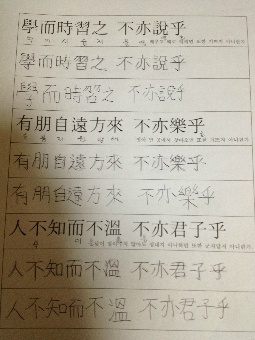 學而時習之 不亦說乎
學而時習之 不亦說乎
學而時習之 不亦說乎
有朋自遠方來 不亦樂乎
有朋自遠方來 不亦樂乎
有朋自遠方來 不亦樂乎
人不知而不溫 不亦君子乎
人不知而不溫 不亦君子乎
人不知而不溫 不亦君子乎